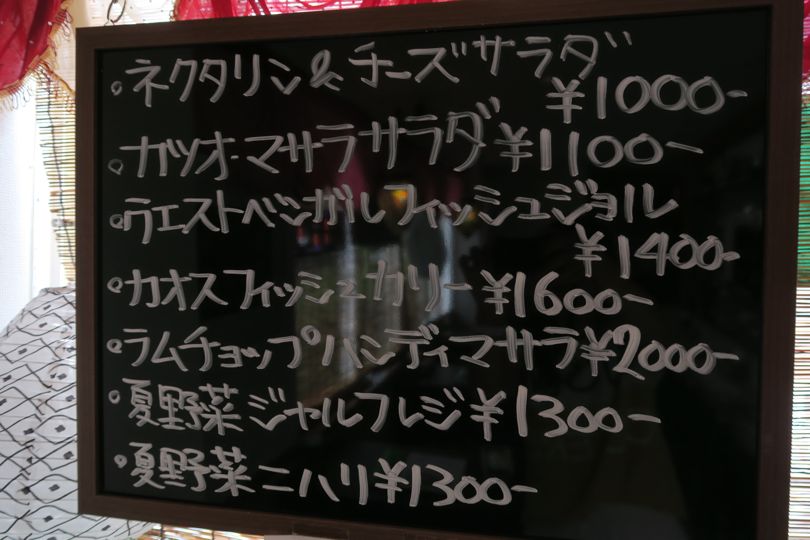 ・ネクタリン&チーズサラダ
¥1000-
・カツオ・マサラサラダ¥1100-
・ウエストベンガルフィッシュジョル
¥1400-
・カオスフィッシュカリー¥1600-
・ラムチョップハンディマサラ¥2000-
・夏野菜ジャルフレジ¥1300-
・夏野菜ニハリ¥1300-